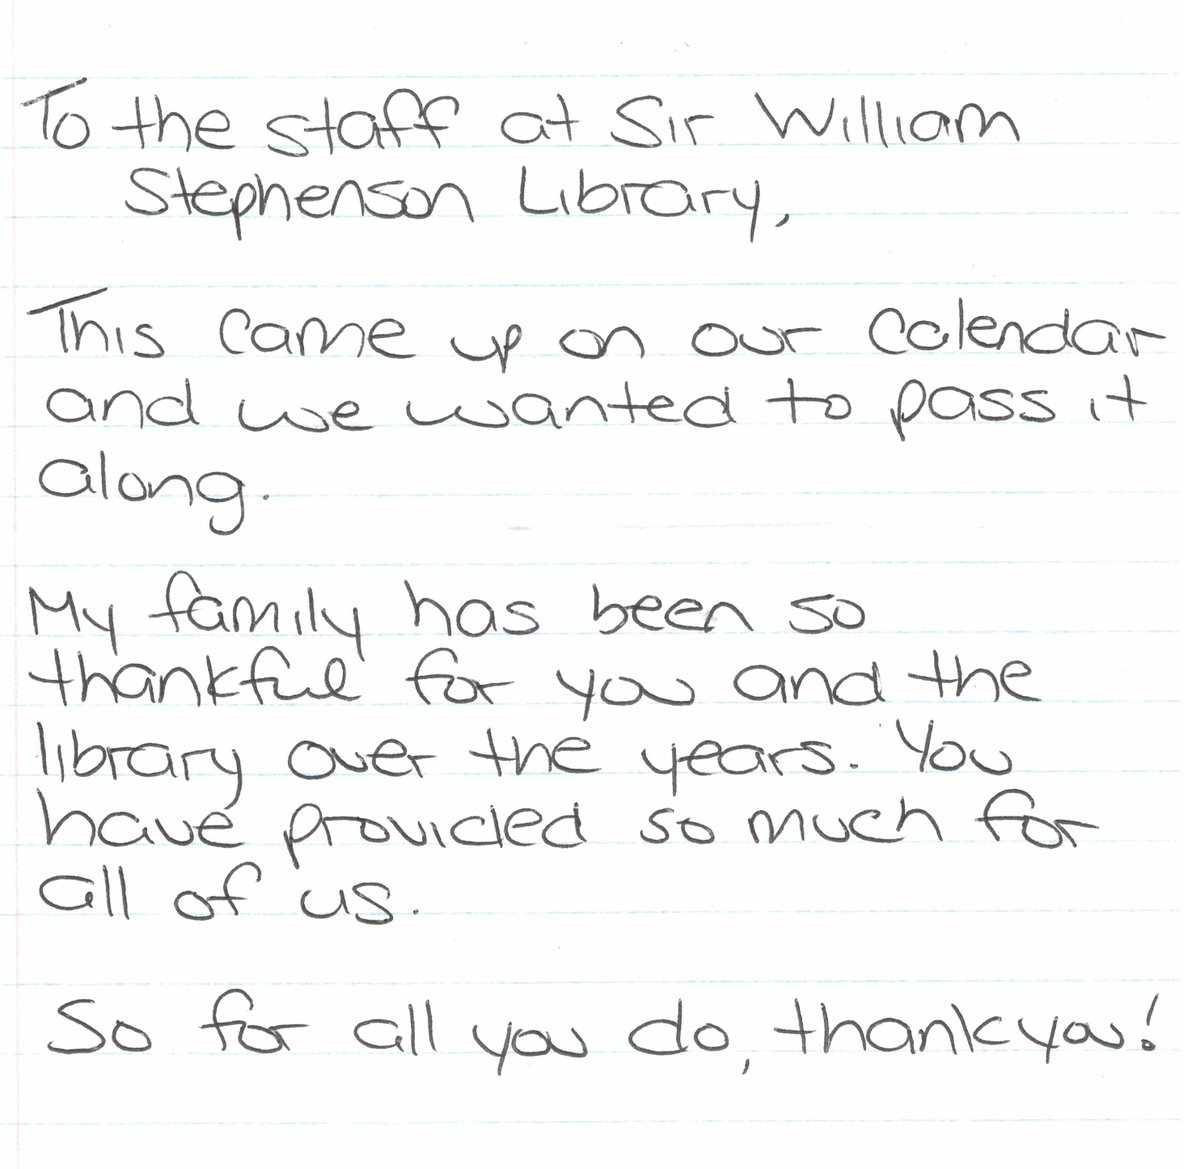 To the staff at Sir William
Stephenson Library,
This came up on our calendar
and we wanted to pass it
along.
My family has been so
thankful for you and the
library over the years. You
have provided so much for
all of us.
So for all you do, thankyou!